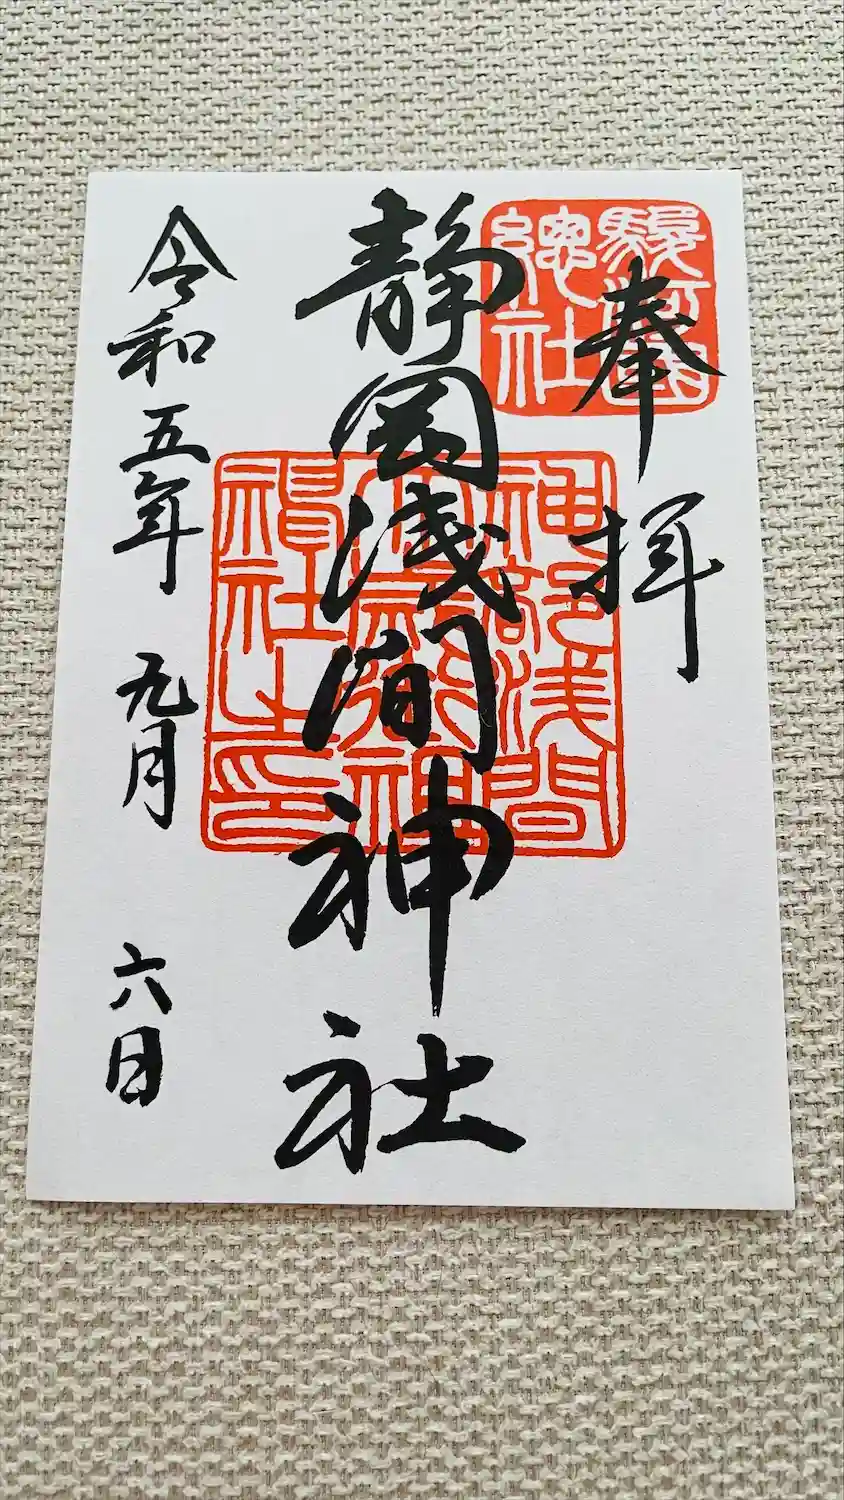 奉拝
駿河國
總社
静岡浅間神社
神部浅間
大歳御祖
神社之印
令和五年 九月 六日